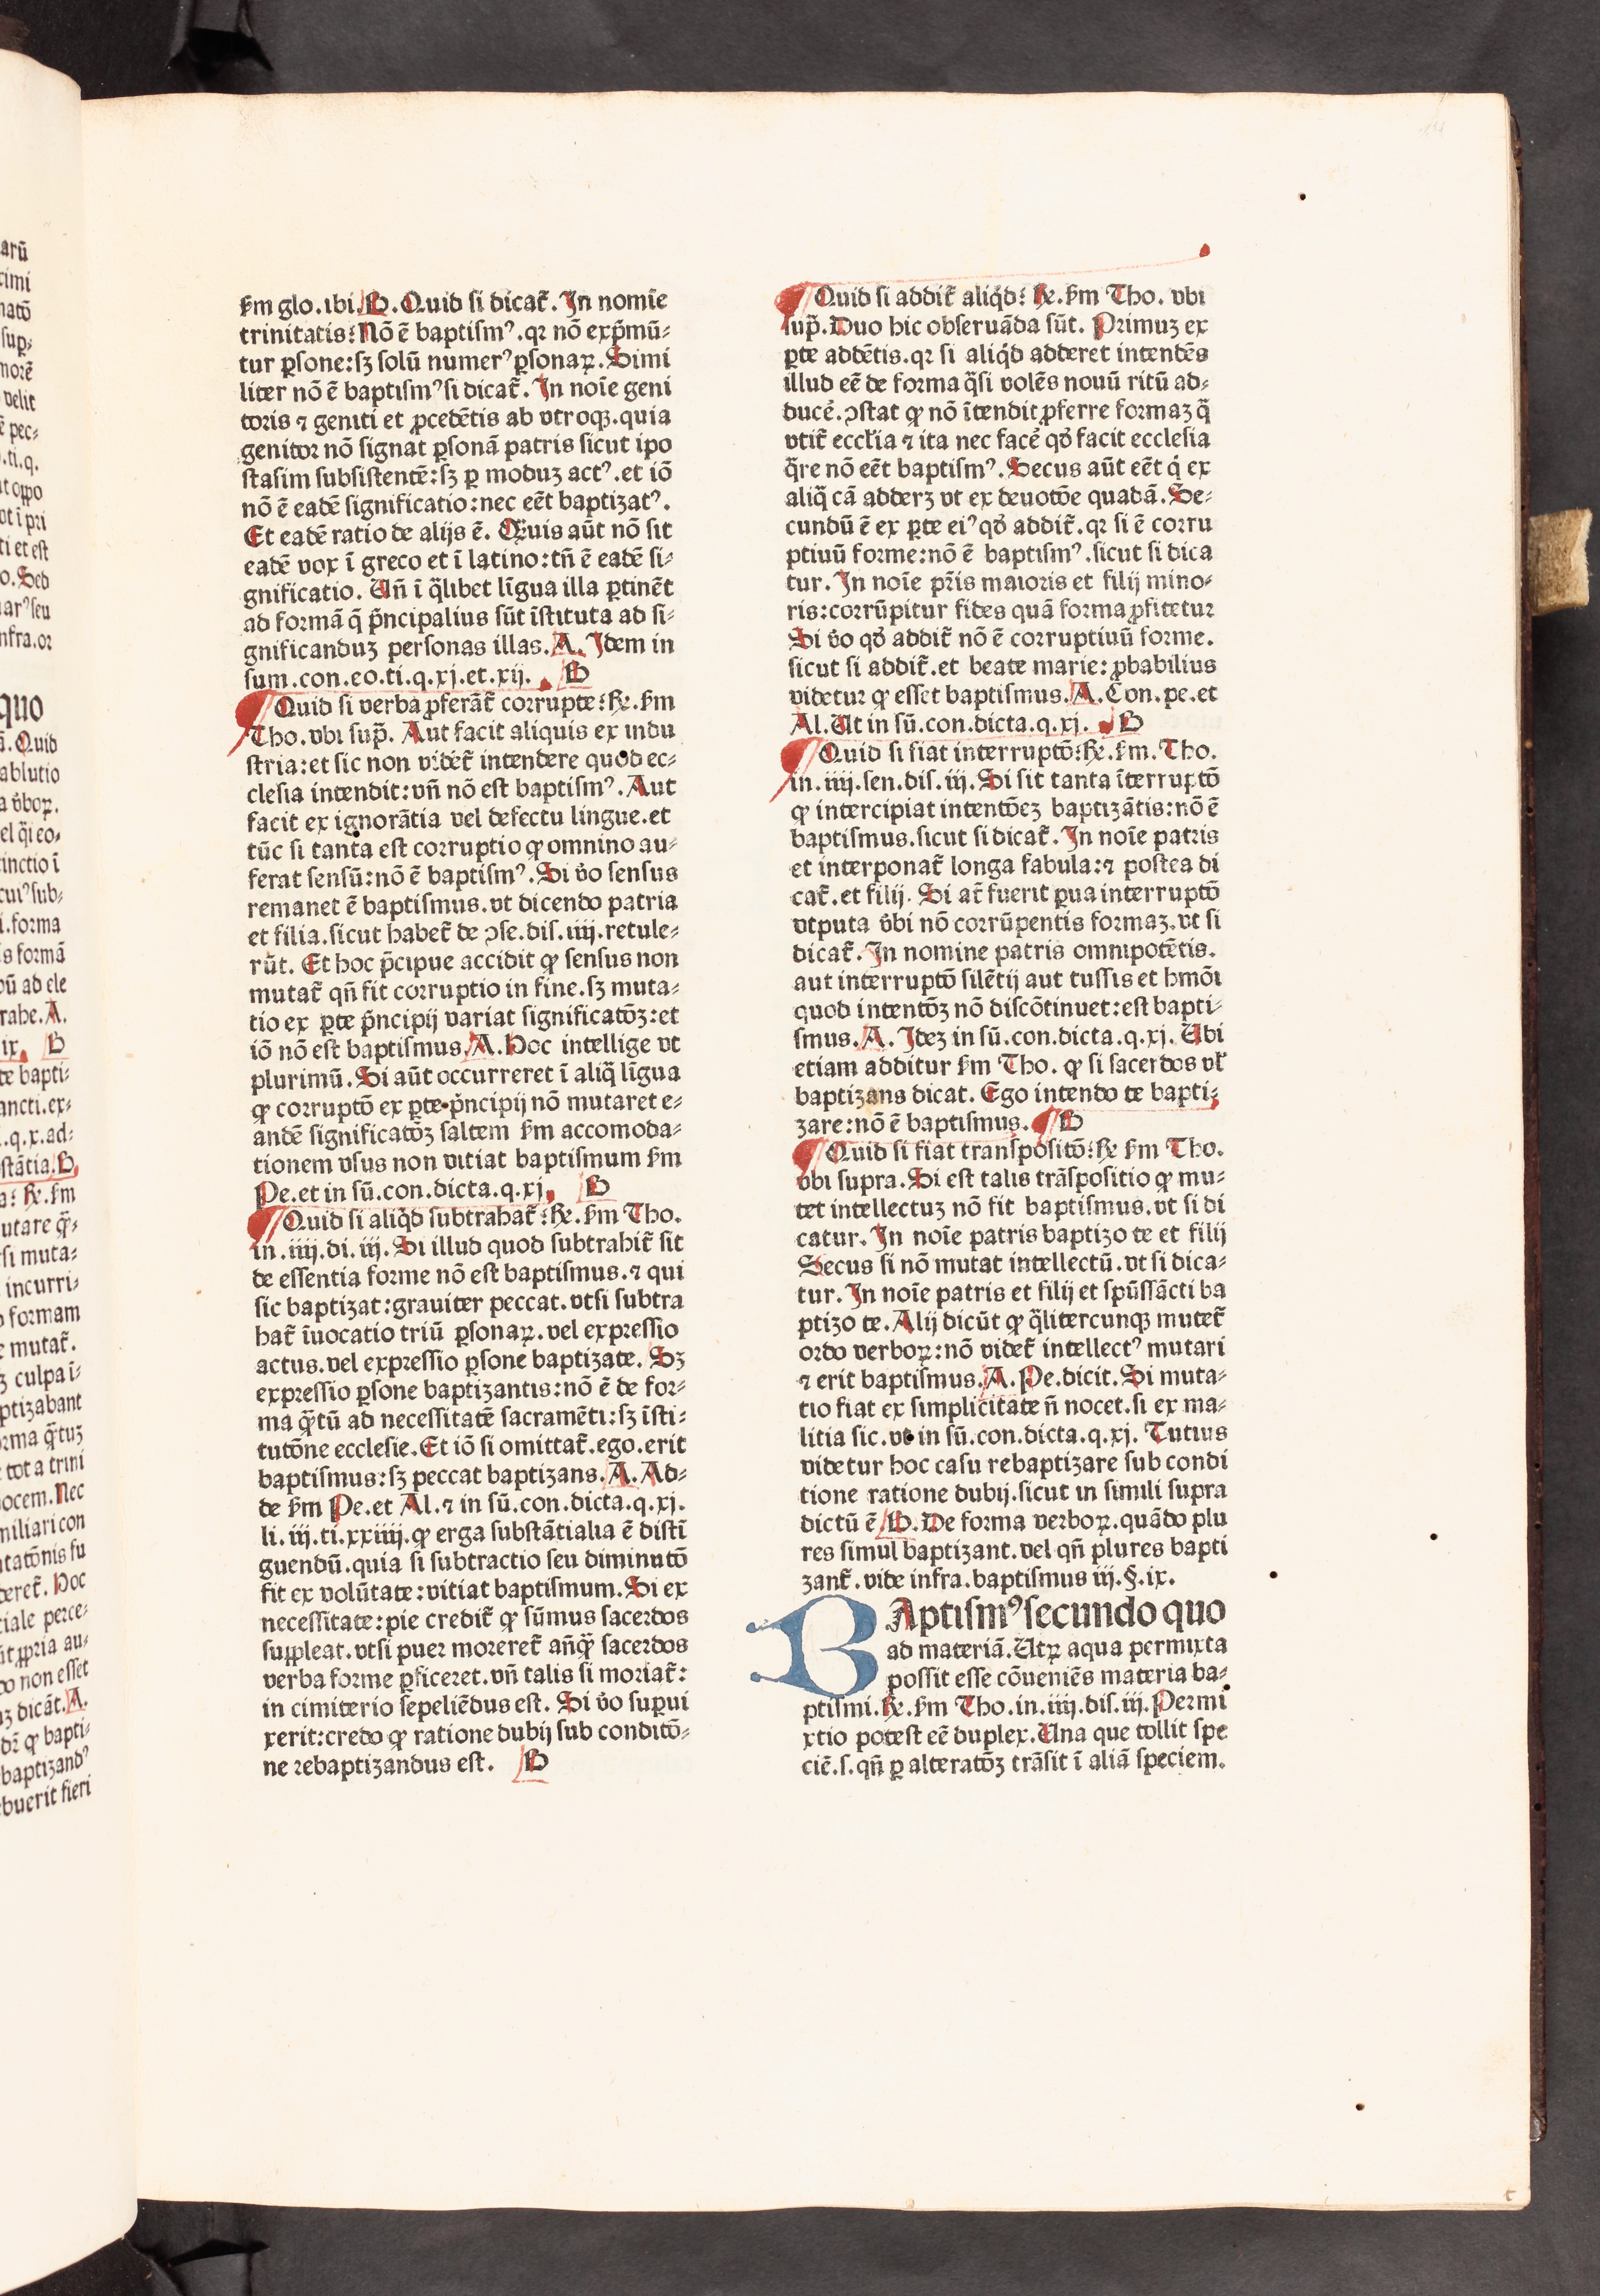 ẜm glo.ibi.B.Quid si dicat̃. In nomĩe
trinitatis: Nõ ẽ baptismꝰ.qꝛ nõ exp̃mũ⸗
tur ꝑsone:sꝫ solũ numerꝰ ꝑsonaꝝ. Simi
liter nõ ẽ baptismꝰ si dicat̃. In noĩe geni
toris ⁊ geniti et ꝓcedẽtis ab vtroqꝫ.quia
genitor nõ signat ꝑsonã patris sicut ipo
stasim subsistentẽ:sꝫ ꝑ moduꝫ actꝰ.et iõ
nõ ẽ eadẽ significatio:nec eẽt baptizatꝰ.
Et eadẽ ratio de alijs ẽ. Q̃uis aũt nõ sit
eadẽ vox ĩ greco et ĩ latino:tñ ẽ eadẽ si⸗
gnificatio. Uñ ĩ q̃libet lĩgua illa ꝑtinẽt
ad formã q̃ p̃ncipalius sũt ĩstituta ad si⸗
gnificanduꝫ personas illas. A. Idem in
sum.con.eo.ti.q.xj.et.xij. B
Quid si verba ꝓferãt̃ corrupte: ꝶ. ẜm
Tho.vbi sup̃. Aut facit aliquis ex indu
stria:et sic non videt̃ intendere quod ec⸗
clesia intendit:vñ nõ est baptismꝰ. Aut
facit ex ignorãtia vel defectu lingue.et
tũc si tanta est corruptio ꝙ omnino au⸗
ferat sensũ:nõ ẽ baptismꝰ. Si v̉o sensus
remanet ẽ baptismus.vt dicendo patria
et filia.sicut habet̃ de ꝯse.dis.iiij.retule⸗
rũt. Et hoc p̃cipue accidit ꝙ sensus non
mutat̃ qñ fit corruptio in fine.sꝫ muta⸗
tio ex ꝑte p̃ncipij variat significatõꝫ:et
iõ nõ est baptismus. A. Hoc intellige vt
plurimũ. Si aũt occurreret ĩ aliq̃ lĩgua
ꝙ corruptõ ex ꝑte p̃ncipij nõ mutaret e⸗
andẽ significatõꝫ saltem ẜm accomoda⸗
tionem vsus non vitiat baptismum ẜm
Pe.et in sũ.con.dicta.q.xj. B
Quid si aliq̉d subtrahat̃: ꝶ. ẜm Tho.
in.iiij.di.iij. Si illud quod subtrahit̃ sit
de essentia forme nõ est baptismus.⁊ qui
sic baptizat:grauiter peccat.vtsi subtra
hat̃ ĩuocatio triũ ꝑsonaꝝ.vel expressio
actus.vel expressio ꝑsone baptizate. Sꝫ
expressio ꝑsone baptizantis:nõ ẽ de for⸗
ma q̃tũ ad necessitatẽ sacramẽti:sꝫ ĩsti⸗
tutõne ecclesie. Et iõ si omittat̃.ego.erit
baptismus:sꝫ peccat baptizans. A. Ad⸗
de ẜm Pe.et Al.⁊ in sũ.con.dicta.q.xj.
li.iij.ti.xxiiij.ꝙ erga substãtialia ẽ distĩ
guendũ.quia si subtractio seu diminutõ
fit ex volũtate:vitiat baptismum. Si ex
necessitate:pie credit̃ ꝙ sũmus sacerdos
suppleat.vtsi puer moreret̃ añq̃ sacerdos
verba forme ꝑficeret.vñ talis si moriat̃:
in cimiterio sepeliẽdus est. Si v̉o supui
xerit:credo ꝙ ratione dubij sub conditõ⸗
ne rebaptizandus est. B
Quid si addit̃ aliq̉d: ꝶ. ẜm Tho. vbi
sup̃. Duo hic obseruãda sũt. Primuꝫ ex
ꝑte addẽtis.qꝛ si aliq̉d adderet intendẽs
illud eẽ de forma q̃si volẽs nouũ ritũ ad⸗
ducẽ.ꝯstat ꝙ nõ ĩtendit ꝓferre formaꝫ q̃
vtit̃ eccľia ⁊ ita nec facẽ qđ facit ecclesia
q̃re nõ eẽt baptismꝰ. Secus aũt eẽt q̉ ex
aliq̃ cã adderꝫ vt ex deuotõe quadã. Se⸗
cundũ ẽ ex ꝑte eiꝰ qđ addit̃.qꝛ si ẽ corru
ptiuũ forme:nõ ẽ baptismꝰ.sicut si dica
tur. In noĩe p̃ris maioris et filij mino⸗
ris:corrũpitur fides quã forma ꝓfitetur
Si v̉o qđ addit̃ nõ ẽ corruptiuũ forme.
sicut si addit̃.et beate marie:ꝓbabilius
videtur ꝙ esset baptismus. A. Con.pe.et
Al. Ut in sũ.con.dicta.q.xj. B
Quid si fiat interruptõ: ꝶ. ẜm. Tho.
in.iiij.sen.dis.iij. Si sit tanta ĩterruptõ
ꝙ intercipiat intentõeꝫ baptizãtis:nõ ẽ
baptismus.sicut si dicat̃. In noĩe patris
et interponat̃ longa fabula:⁊ postea di
cat̃.et filij. Si at̃ fuerit ꝑua interruptõ
vtputa v̉bi nõ corrũpentis formaꝫ.vt si
dicat̃. In nomine patris omnipotẽtis.
aut interruptõ silẽtij aut tussis et hmõi
quod intentõꝫ nõ discõtinuet:est bapti⸗
smus. A. Ideꝫ in sũ.con.dicta.q.xj. Ubi
etiam additur ẜm Tho. ꝙ si sacerdos vľ
baptizans dicat. Ego intendo te bapti⸗
zare:nõ ẽ baptismus. B
Quid si fiat transpositõ: ꝶ ẜm Tho.
vbi supra. Si est talis trãspositio ꝙ mu⸗
tet intellectuꝫ nõ fit baptismus.vt si di
catur. In noĩe patris baptizo te et filij
Secus si nõ mutat intellectũ.vt si dica⸗
tur. In noĩe patris et filij et spũssãcti ba
ptizo te. Alij dicũt ꝙ q̃litercunqꝫ mutet̃
ordo verboꝝ:nõ videt̃ intellectꝰ mutari
⁊ erit baptismus. A. Pe.dicit. Si muta⸗
tio fiat ex simplicitate ñ nocet.si ex ma⸗
litia sic.vt in sũ.con.dicta.q.xj. Tutius
videtur hoc casu rebaptizare sub condi
tione ratione dubij.sicut in simili supra
dictũ ẽ. B. De forma verboꝝ.quãdo plu
res simul baptizant.vel qñ plures bapti
zant̃.vide infra.baptismus iij.§.ix.
BAptismꝰ secundo quo
ad materiã. Utꝝ aqua permixta
possit esse cõueniẽs materia ba⸗
ptismi. ꝶ. ẜm Tho.in.iiij.dis.iij. Permi
xtio potest eẽ duplex. Una que tollit spe
ciẽ.s.qñ ꝑ alteratõꝫ trãsit ĩ aliã speciem.